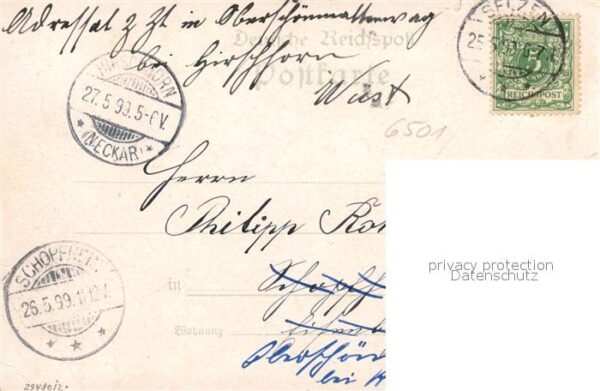 Adressat z Zt in Oberschönmattenwag
bei Hirschhorn
Deutsche Reichspost
Postkarte
Wiest
SELZEN
25.5.99.6-7
5
REICHSPOST
HIRSCHHORN
27.5.99.5-6V.
(NECKAR)
6501
Herrn
Philipp
privacy protection
Datenschutz
SCHOPFHEIM
26.5.99.11-12V.
in
Wohnung
Oberschön
bei
29480/2